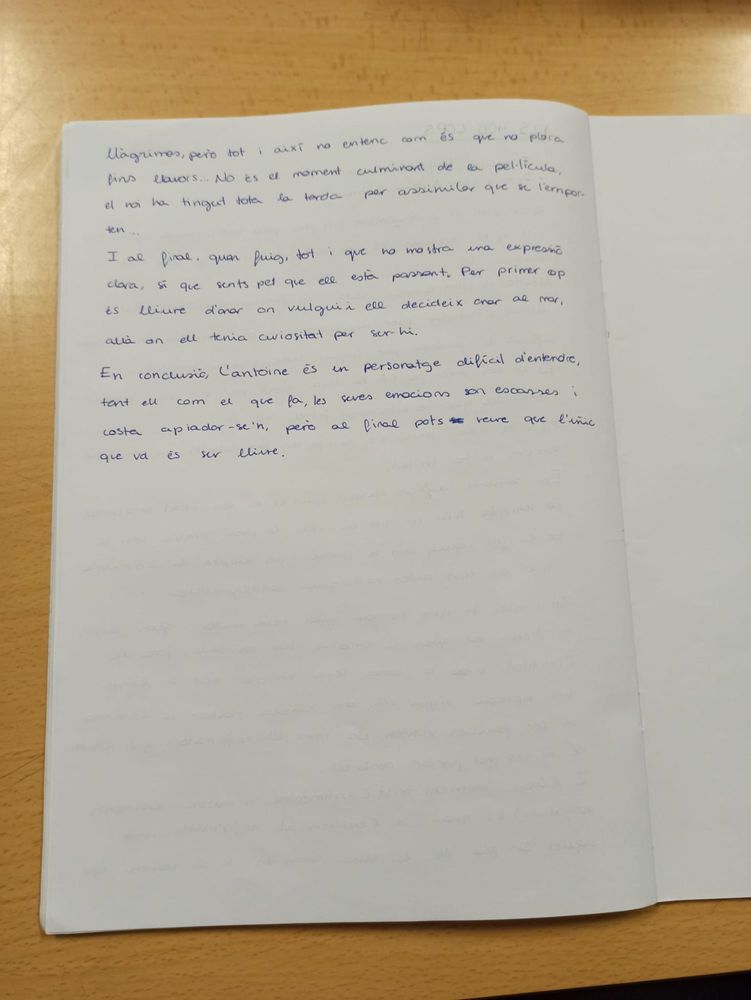 llàgrimes, però tot i així no entenc com és que no plora
fins llavors... No és el moment culminant de la pel·lícula,
el noi ha tingut tota la tarda per assimilar que se l'empor-
ten...
I al final, quan fuig, tot i que no mostra una expressió
clara, sí que sents pel que ell està passant. Per primer cop
és lliure d'anar on vulgui i ell decideix anar al mar,
allà on ell tenia curiositat per ser-hi.
En conclusió, l'antoine és un personatge difícil d'entendre,
tant ell com el que fa, les seves emocions són escasses i
costa apiador-se'n, però al final pots veure que l'únic
que va és ser lliure.